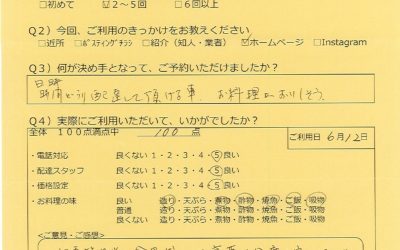 □初めて ☑2～5回 □6回以上
Q2）今回、ご利用のきっかけをお教えください
□近所 □ポスティングチラシ □紹介（知人・業者） ☑ホームページ □Instagram
Q3）何が決め手となって、ご予約いただけましたか？
日時
時間どうり配達して頂ける事、お料理がおいしそう。
Q4）実際にご利用いただいて、いかがでしたか？
全体 １００点満点中 100 点
ご利用日 6月12日
・電話対応 良くない 1・2・3・4・5 良い
・配達スタッフ 良くない 1・2・3・4・5 良い
・価格設定 良くない 1・2・3・4・5 良い
・お料理の味 良い 造り・天ぷら・煮物・酢物・焼魚・ご飯・吸物
普通 造り・天ぷら・煮物・酢物・焼魚・ご飯・吸物
良くない 造り・天ぷら・煮物・酢物・焼魚・ご飯・吸物
＜ご意見・ご感想＞